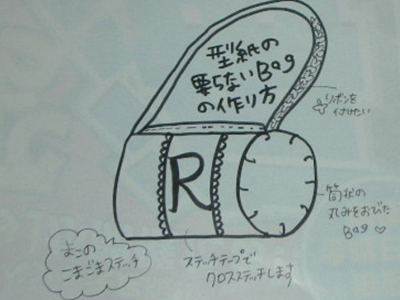 型紙の
要らないBag
の作り方
リボンを
付けたい
R
筒状の
丸みをおびた
Bag♡
まこの
こまごまステッチ
ステッチテープで
クロスステッチします